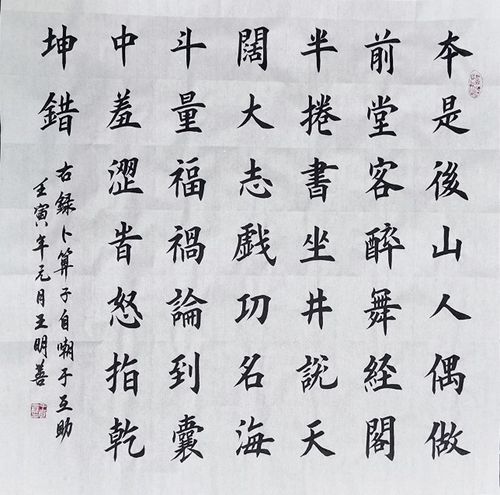 本是後山人偶做
前堂客醉舞經閣
半捲書坐井說天
闊大志戲功名海
斗量福禍論到囊
中羞澀旹怒指乾
坤錯
右錄卜算子自嘲于互助
壬寅年元月王明善